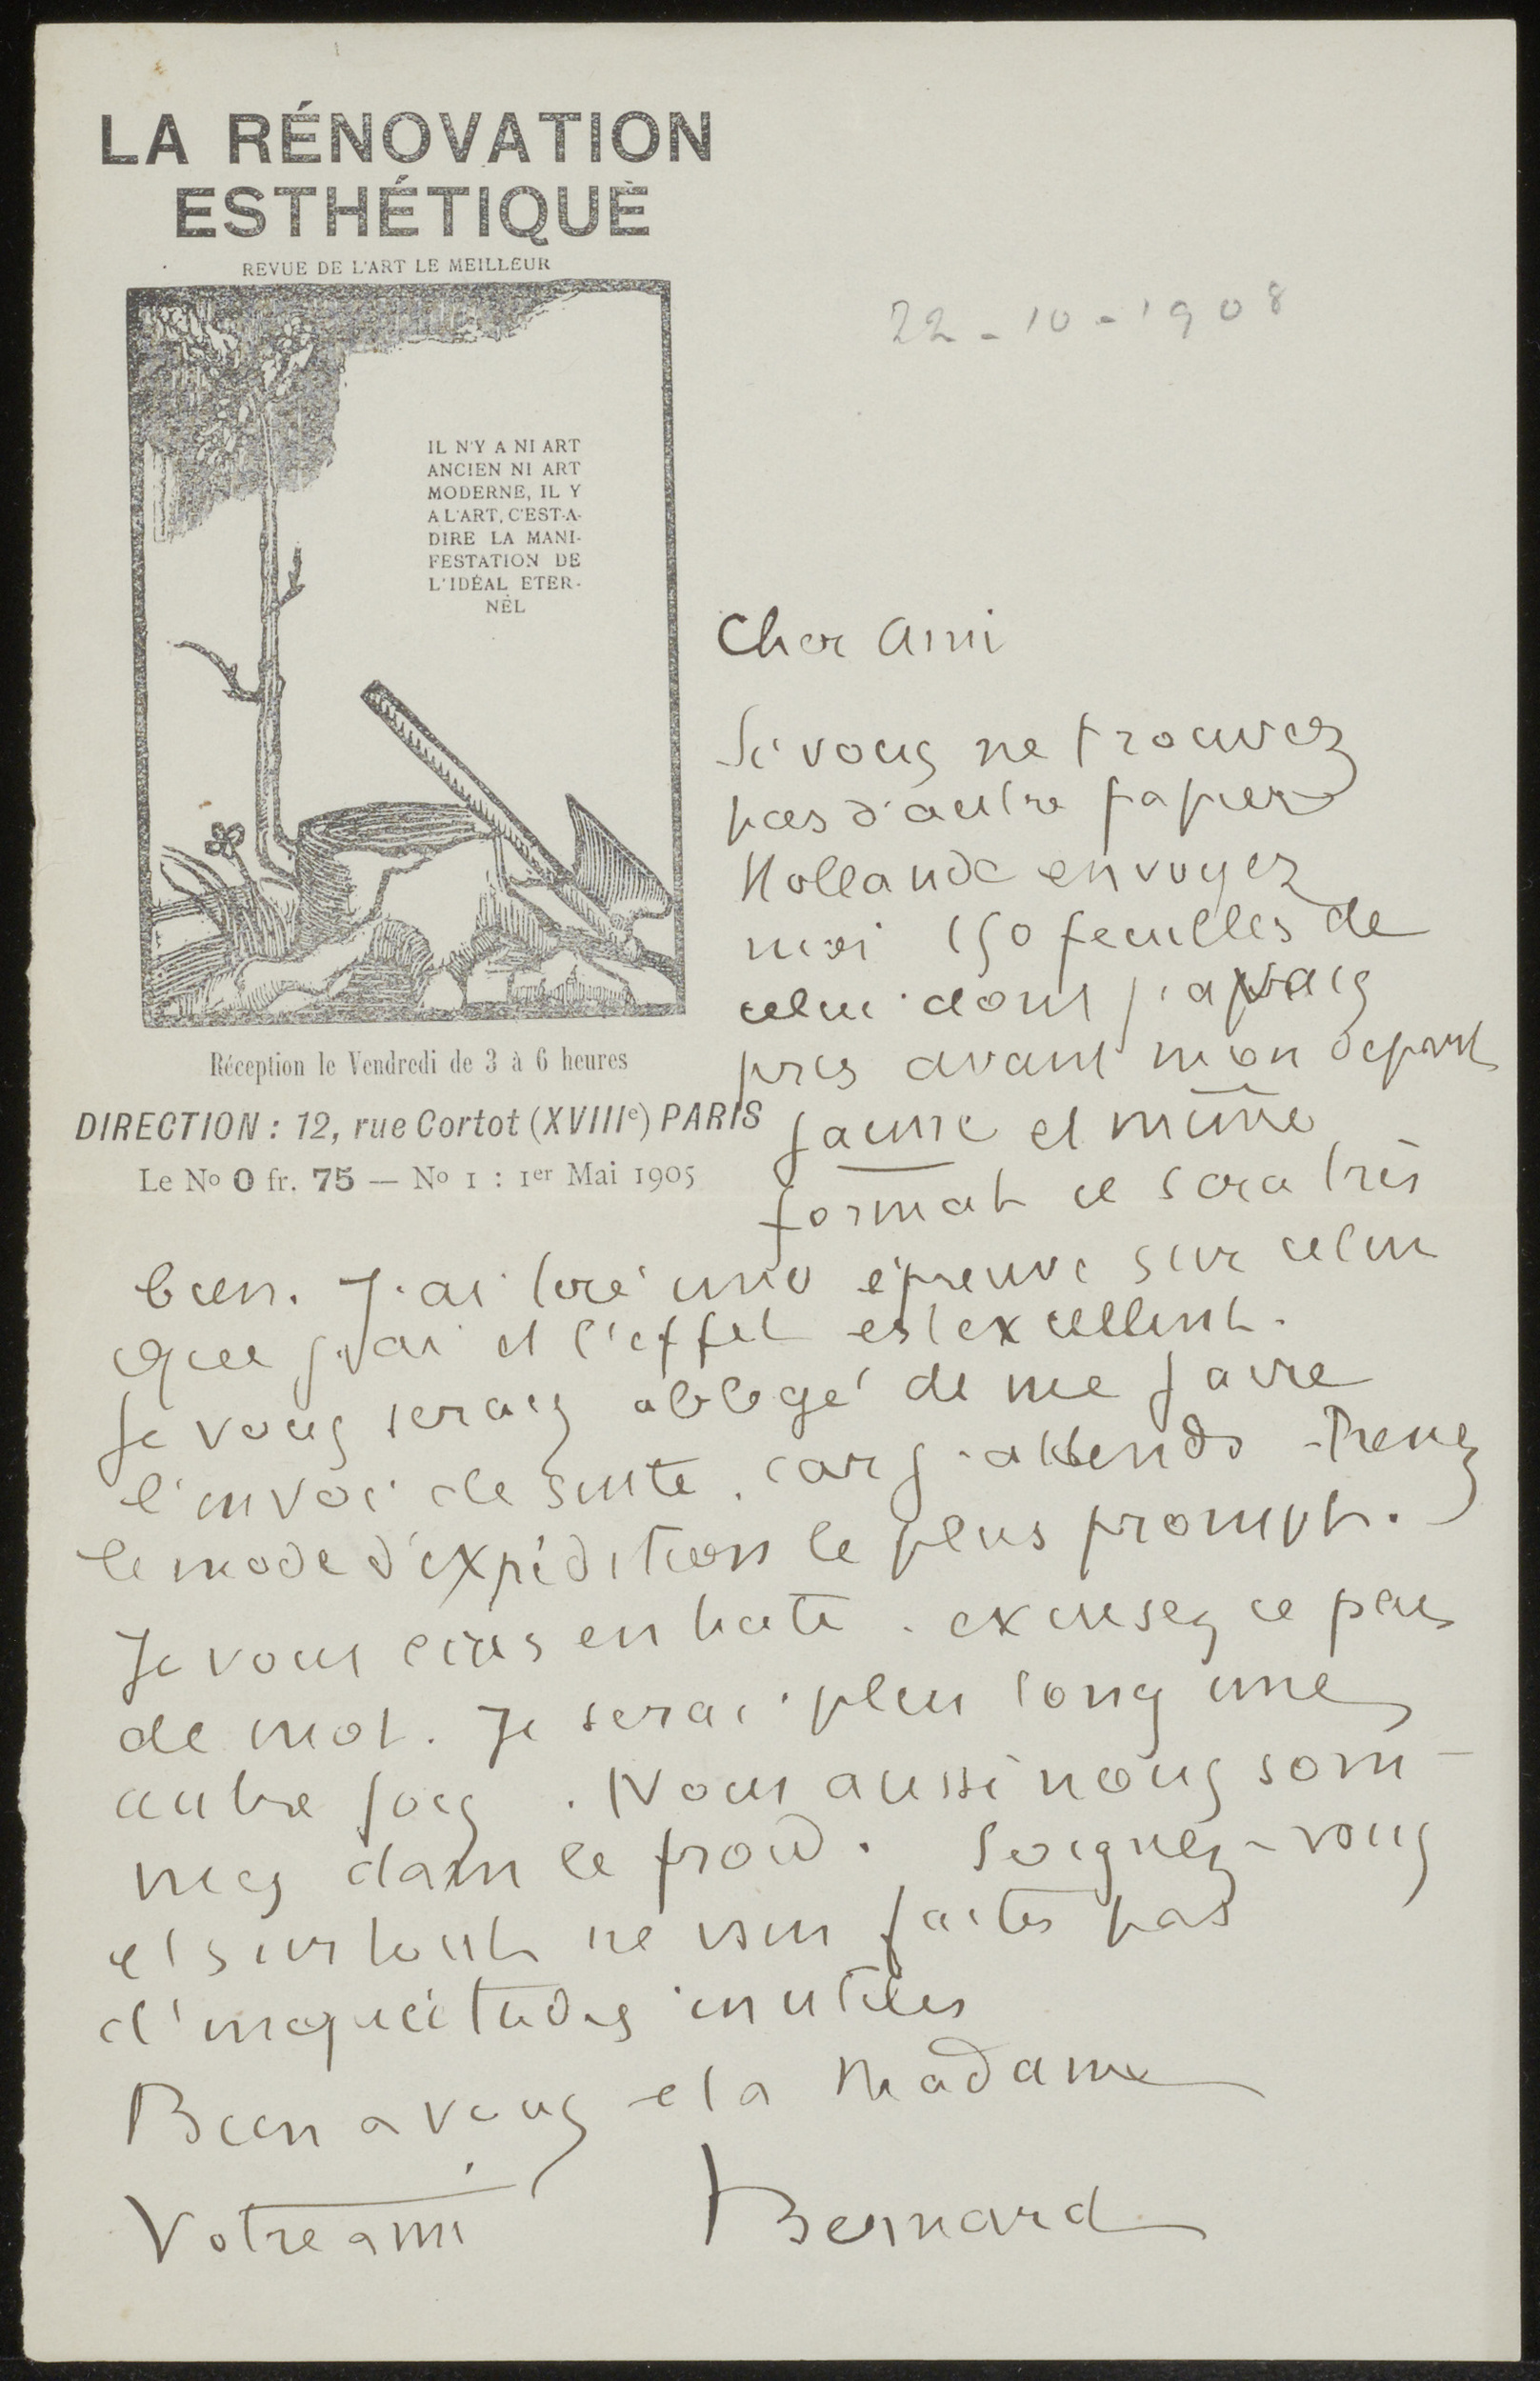 LA RÉNOVATION
ESTHÉTIQUE
REVUE DE L'ART LE MEILLEUR
22-10-1908
IL N'Y A NI ART
ANCIEN NI ART
MODERNE, IL Y
A L'ART, C'EST-A-
DIRE LA MANI-
FESTATION DE
L'IDÉAL ETER-
NEL
Réception le Vendredi de 3 à 6 heures
DIRECTION : 12, rue Cortot (XVIIIe) PARIS
Le No 0 fr. 75 — No 1 : 1er Mai 1905
Cher Ami
Si vous ne trouvez
pas d'autre papier
Hollande envoyez
moi 150 feuilles de
celui dont j'avais
pris avant mon depart
jaune et même
format ce sera très
bien. J'ai tiré une épreuve sur celui
que j'ai et l'effet est excellent.
Je vous serais obligé de me faire
l'envoi de suite. car j'attends. Prenez
le mode d'expédition le plus prompt.
Je vous ecris en hate. excusez ce peu
de mot. Je serai plus long une
autre fois. Nous aussi nous som-
mes dans le froid. Soignez-vous
et surtout ne vous faites pas
d'inquietudes inutiles
Bien a vous et a Madame
Votre ami Bernard